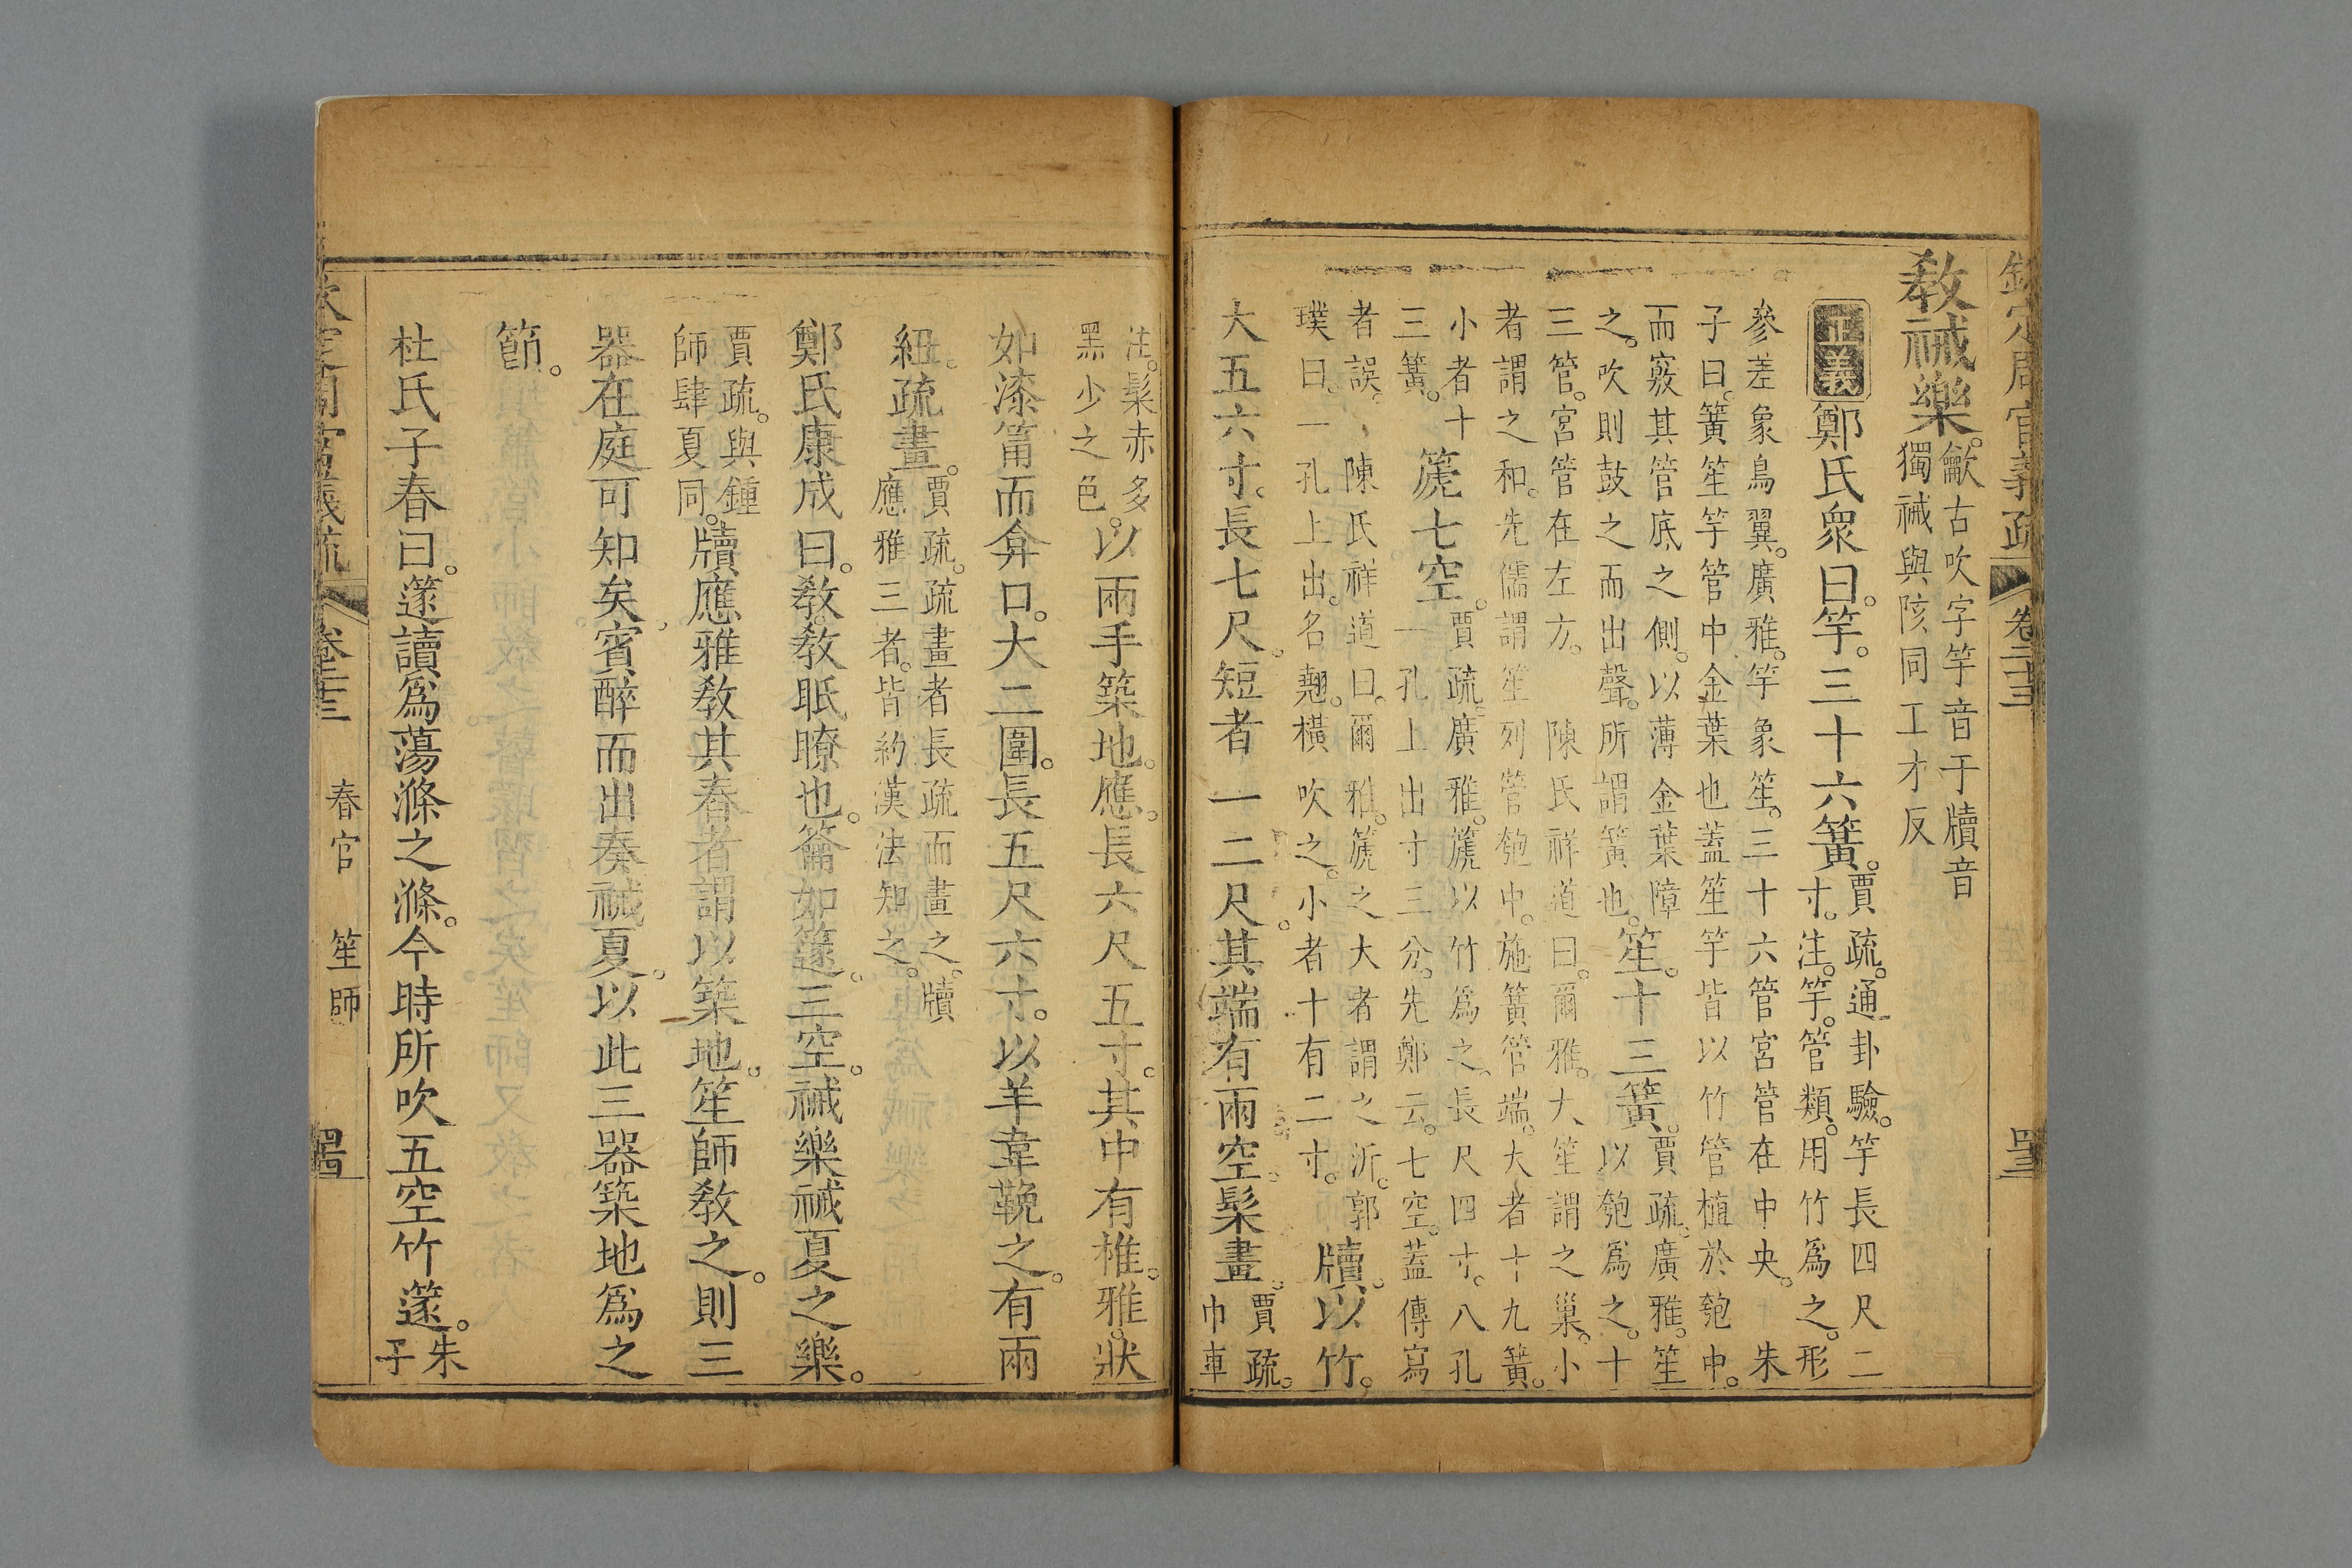 欽定周官義疏 卷二十三 四三
教祴樂。
龡古吹字竽音于牘音
獨祴與陔同工才反
正義 鄭氏衆曰。竽。三十六簧。
賈疏。通卦驗。竽長四尺二
寸。注。竽。管類。用竹爲之。形
參差象鳥翼。廣雅。竽象笙。三十六管宮管在中央。 朱
子曰。簧笙竽管中金葉也蓋笙竽皆以竹管植於匏中。
而竅其管底之側。以薄金葉障
之。吹則鼓之而出聲。所謂簧也。
笙。十三簧。
賈疏。廣雅。笙
以匏爲之。十
三管。宮管在左方。 陳氏祥道曰。爾雅。大笙謂之巢。小
者謂之和。先儒謂笙列管匏中。施簧管端。大者十九簧。
小者十
三簧。
篪七空。
賈疏。廣雅。篪以竹爲之。長尺四寸。八孔
一孔上出寸三分。先鄭云。七空。蓋傳寫
者誤。 陳氏祥道曰。爾雅。篪之大者謂之沂。郭
璞曰。一孔上出。名翹。橫吹之。小者十有二寸。
牘。以竹。
大五六寸。長七尺。短者一二尺。其端有兩空。髤畫。
賈疏。
巾車
注。髤赤多
黑少之色。
以兩手築地。應。長六尺五寸。其中有椎。雅。狀
如漆筩而弇口。大二圍。長五尺六寸。以羊韋鞔之。有兩
紐。疏畫。
賈疏。疏畫者長疏而畫之。牘
應雅三者。皆約漢法知之。
鄭氏康成曰。教。教眂瞭也。籥如篴。三空。祴樂祴夏之樂。
賈疏。與鍾
師肆夏同。
牘應雅教其舂者謂以築地。笙師教之。則三
器在庭可知矣。賓醉而出奏祴夏。以此三器築地爲之
節。
杜氏子春曰。篴讀爲蕩滌之滌。今時所吹五空竹篴。
朱
子
卷二十三 春官 笙師 四四